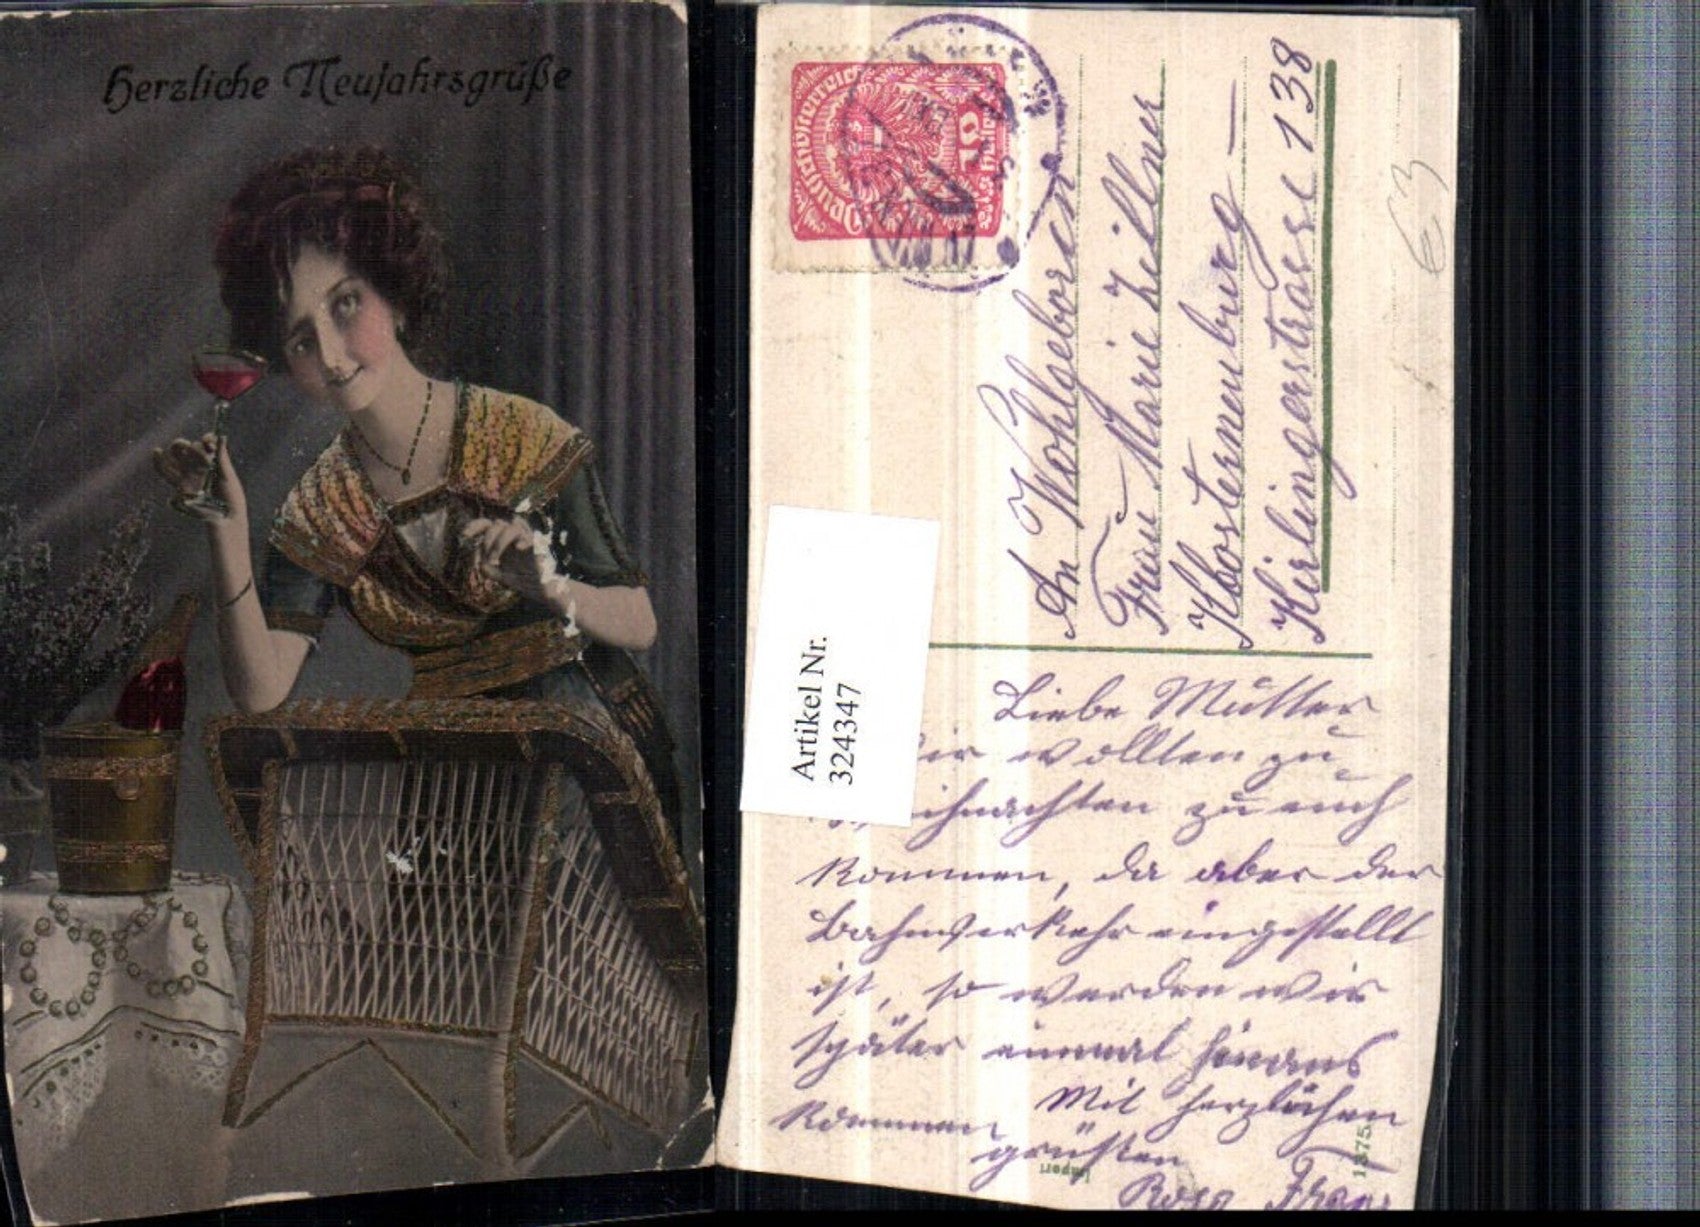 Herzliche Neujahrsgrüße
Deutschösterreich
10
Heller
€3
An Wohlgeboren
Frau Marie Zillner
Klosterneuburg
Kierlingerstrasse 138
Artikel Nr.
324347
Liebe Mutter
wollten zu
zu euch
kommen, da aber der
Bahnverkehr eingestellt
ist, so werden wir
später einmal hinaus
kommen Mit herzlichen
grüßen
Rosa
1875